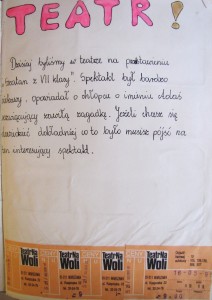 TEATR!
Dzisiaj byliśmy w teatrze na przedstawieniu
"Szatan z VII klasy". Spektakl był bardzo
ciekawy, opowiadał o chłopcu o imieniu Adaś
rozwiązujący zawiłą zagadkę. Jeżeli chcesz się
dowiedzieć dokładniej o co to było musisz pójść na
ten interesujący spektakl.
Teatr Na Woli
Teatr Na Woli
Teatr Na Woli
Teatr Na Woli